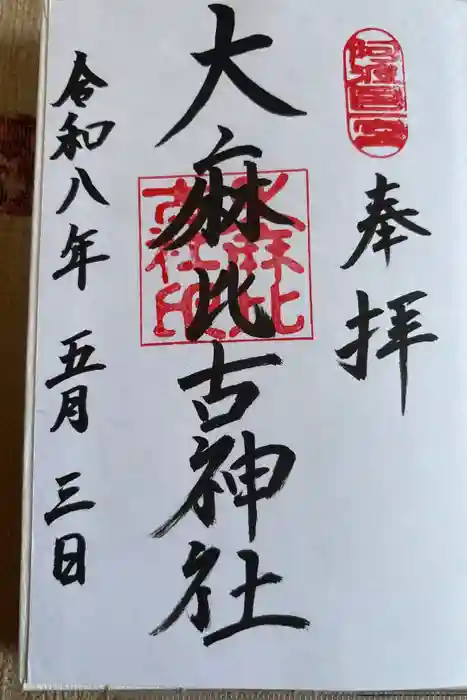 阿波國一宮
奉拝
大麻比古神社
大麻比古社印
令和八年 五月 三日